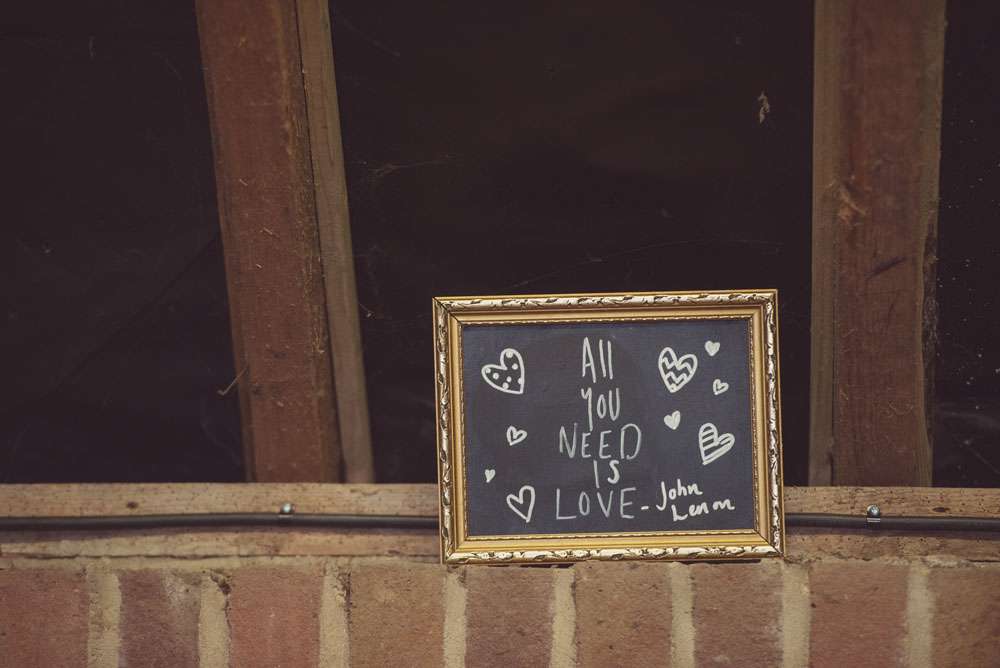 All
YOU
NEED
IS
LOVE - John
Lenon